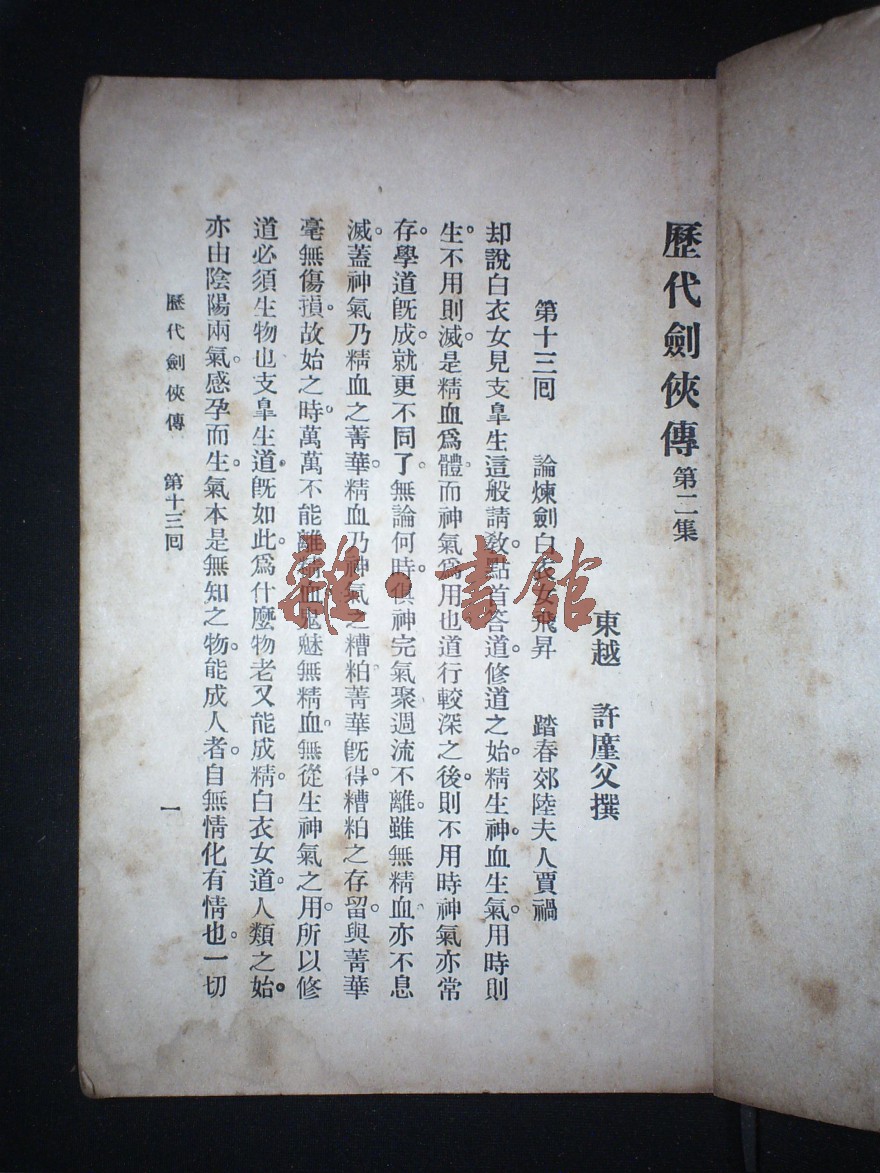 歷代劍俠傳 第二集
東越 許廑父撰
第十三囘 論煉劍白衣女飛昇 踏春郊陸夫人賈禍
却說白衣女見支臯生這般請教。點首答道。修道之始。精生神。血生氣。用時則
生。不用則滅。是精血爲體。而神氣爲用也。道行較深之後。則不用時神氣亦常
存。學道旣成。就更不同了。無論何時。俱神完氣聚。週流不離。雖無精血。亦不息
滅。蓋神氣乃精血之菁華。精血乃神氣之糟粕。菁華旣得。糟粕之存留。與菁華
毫無傷損。故始之時。萬萬不能離精血。鬼魅無精血。無從生神氣之用。所以修
道必須生物也。支臯生道。旣如此。爲什麼物老又能成精。白衣女道。人類之始。
亦由陰陽兩氣。感孕而生。氣本是無知之物。能成人者。自無情化有情也。一切
歷代劍俠傳 第十三囘 一
雜·書館